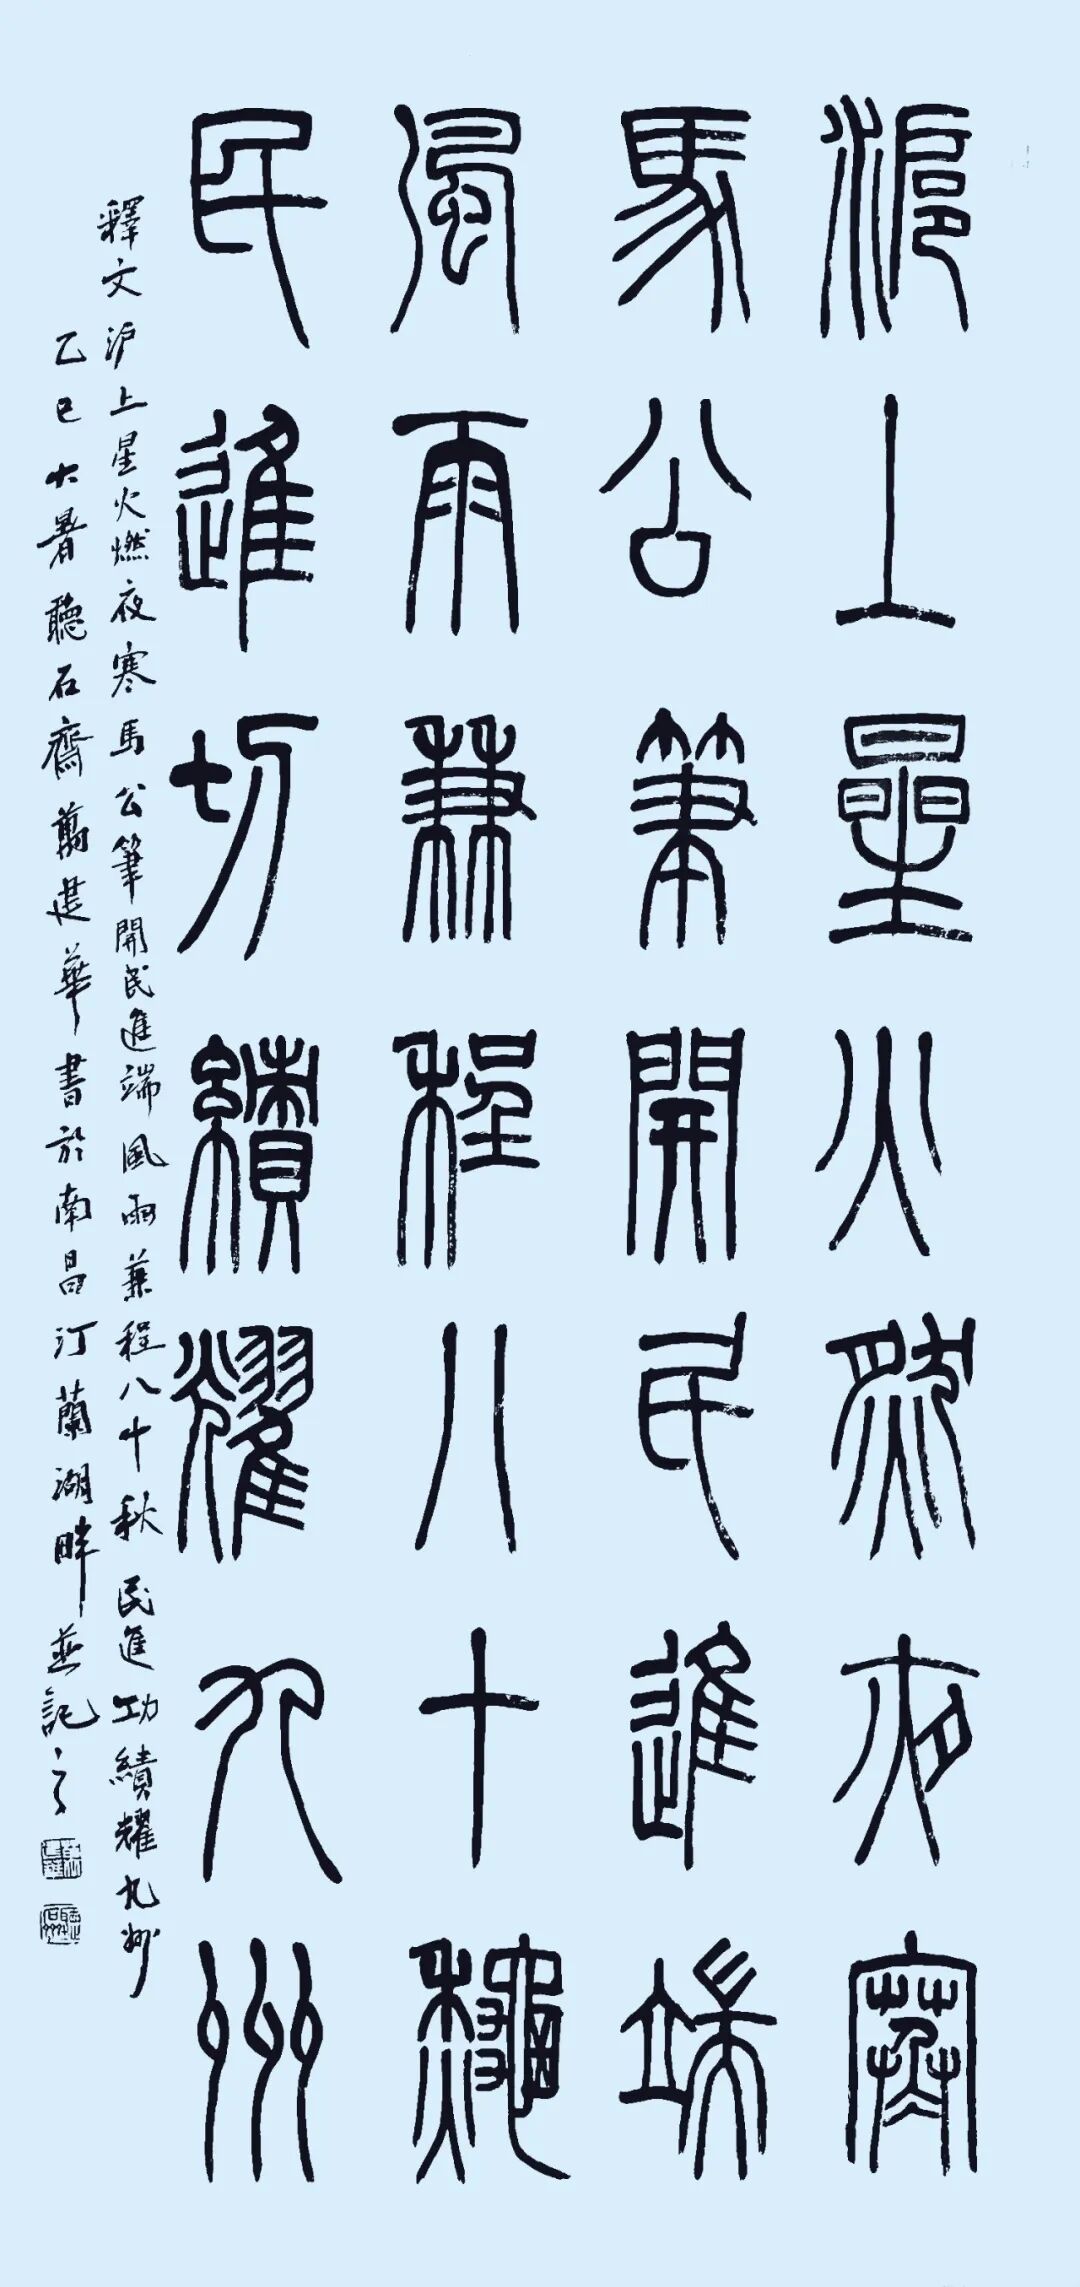 滬上星火然夜寒
馬公筆開民進端
風雨兼程八十秋
民進功績耀九州
釋文 沪上星火燃夜寒馬公筆開民進端風雨兼程八十秋民進功績耀九州
乙巳大暑聽石齋建華書於南昌汀蘭湖畔並記之